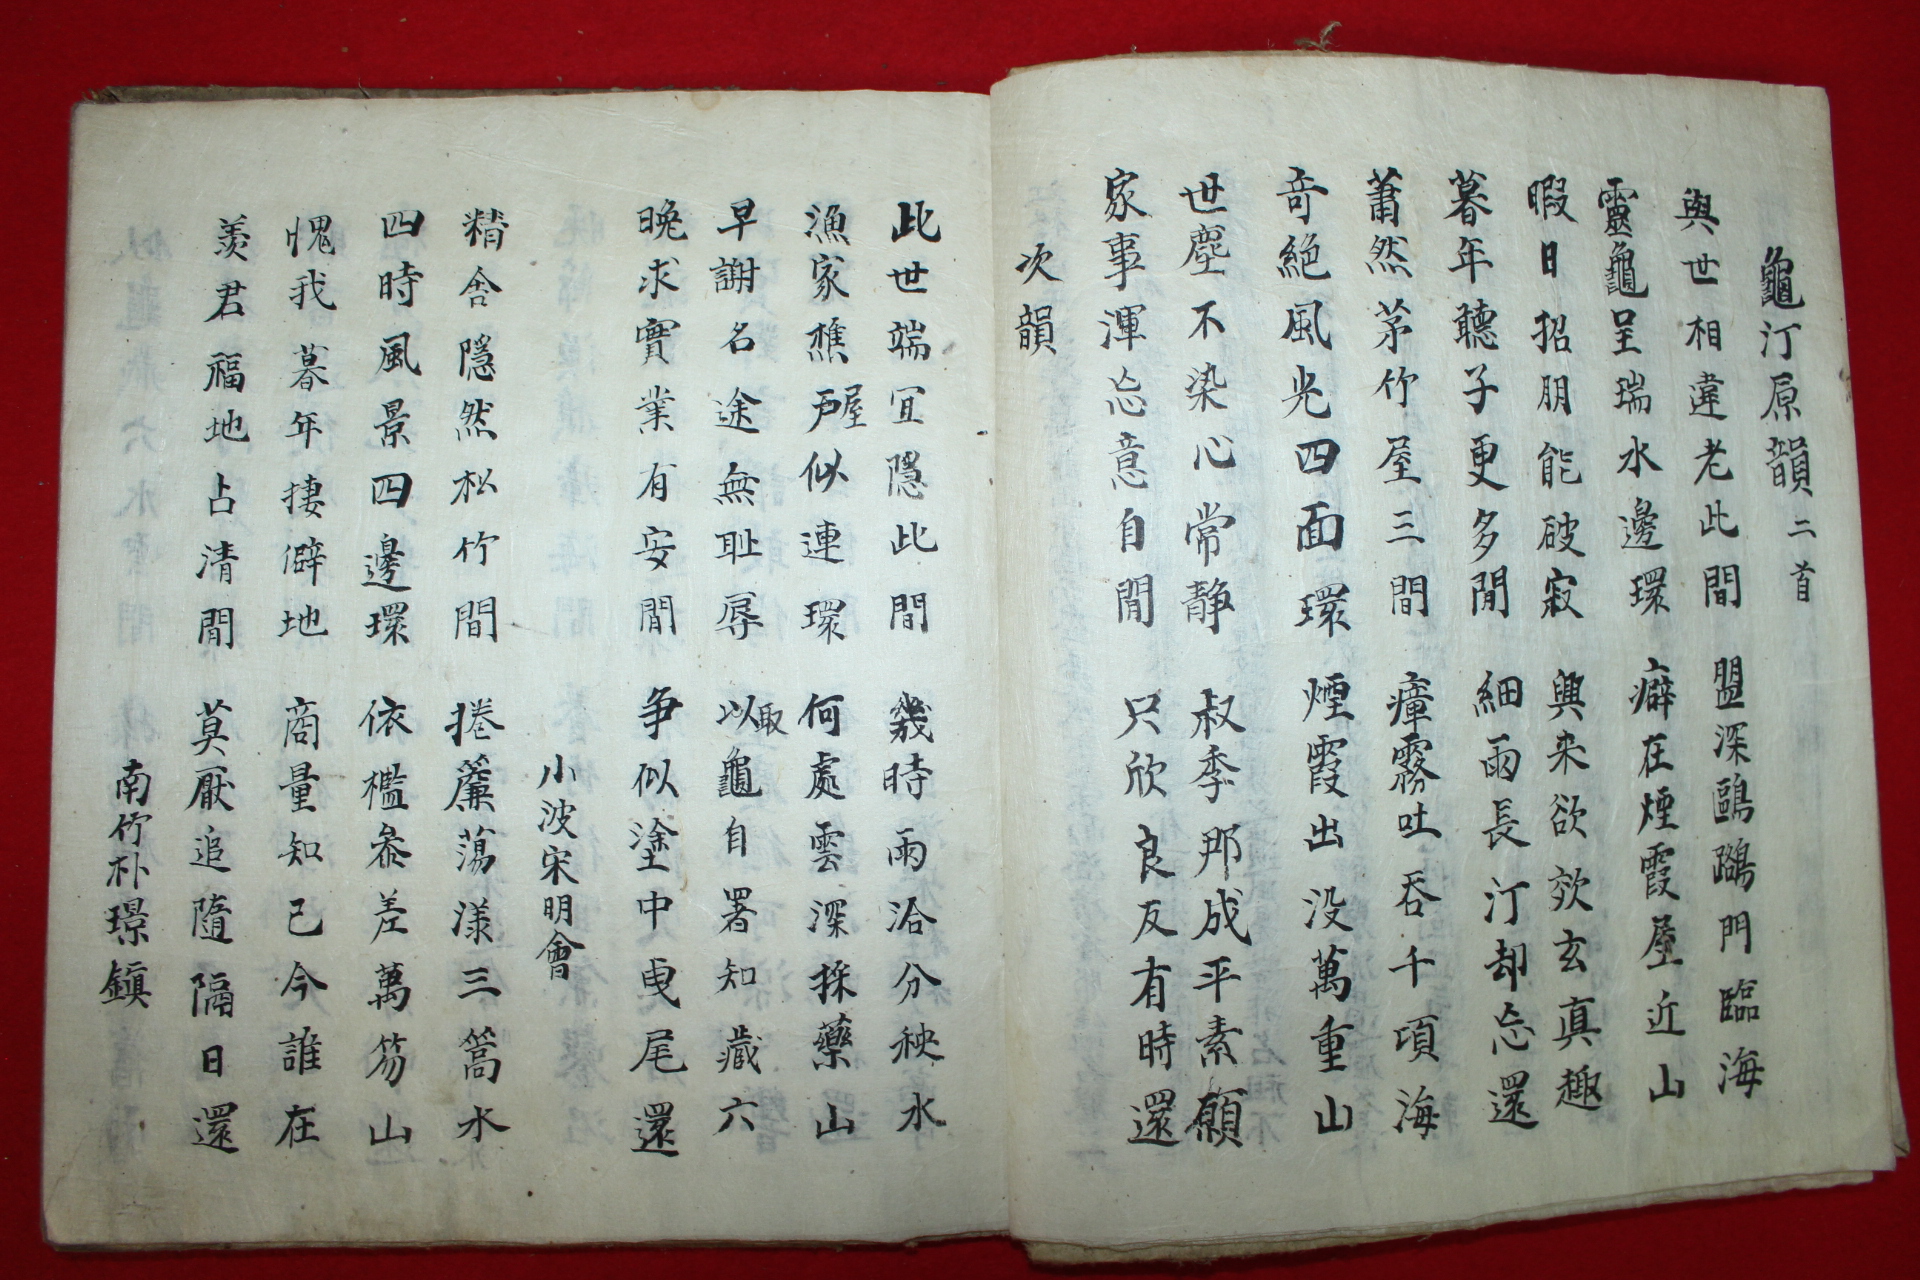 龜汀原韻二首
與世相違老此間 盟深鷗鷺門臨海
靈龜呈瑞水邊環 癖在煙霞屋近山
暇日招朋能破寂 興来欲效玄真趣
暮年聽子更多閒 細雨長汀却忘還
蕭然茅竹屋三間 瘴霧吐吞千頃海
奇絕風光四面環 煙霞出沒萬重山
世塵不染心常靜 叔季那成平素願
家事渾忘意自閒 只欣良友有時還
次韻
此世端冝隱此間 幾時雨洽分秧水
漁家樵戶屋似連環 何處雲深採藥山
早謝名途無耻辱 以取龜自署知藏六
晚求實業有安閒 争似塗中曳尾還
小波宋明會
精舍隱然松竹間 捲簾蕩漾三篙水
四時風景四邊環 依檻參差萬笏山
愧我暮年捿僻地 商量知己今誰在
羡君福地占清閒 莫厭追隨隔日還
南竹朴璟鎭